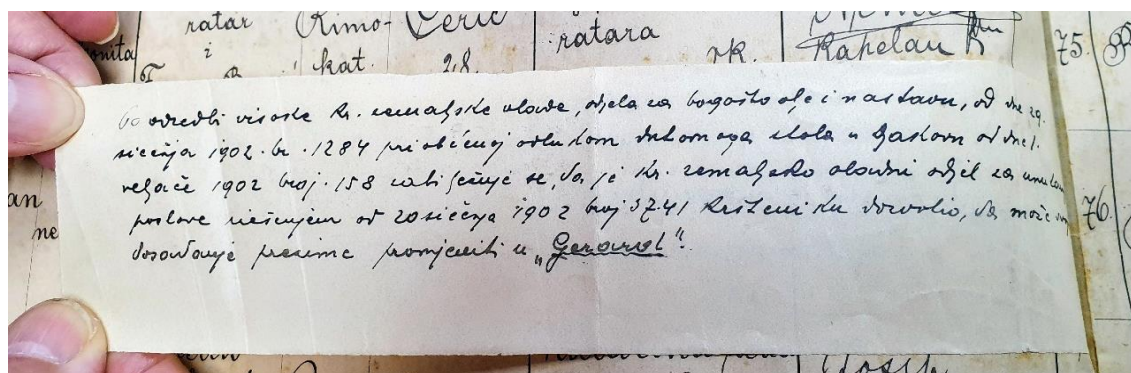 ratar Rimo- Cerić
i kat. 28. ratara rk. Kapelan 75.
Po odredbi visoke kr. zemaljske vlade, odjela za bogoštovlje i nastavu, od dne 29.
siečnja 1902. br. 1284 priobćenoj odlukom duhovnoga stola u Djakovu od dne 1.
veljače 1902 broj 158 zabilježuje se, da je kr. zemaljske vladni odjel za unutar
poslove riešenjem od 20 siečnja 1902 broj 3741 kršteniku dozvolio, da može
dosadanje prezime promjeniti u „Gerard“.
76.
Josip